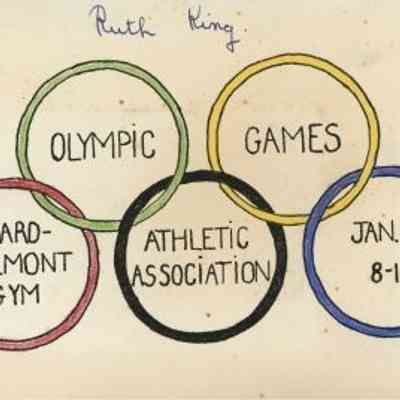 Ruth King.
OLYMPIC
GAMES
ARD-
MONT
GYM
ATHLETIC
ASSOCIATION
JAN.
8-1